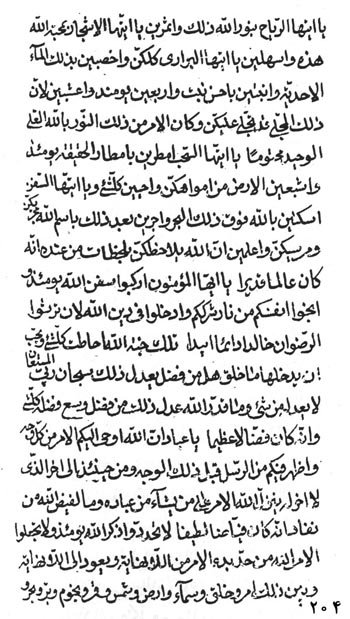 يا ايتها الرياح بنور الله ذلك واعثرين يا ايتها الاشجار بمحبة الله
هذه واسهلين يا ايتها البراري كلكن واخصبين بذلك المآء
الاحدية وانبتين باحسن نبت واربعين يومئذ واعشبين لان
ذلك المجلي قد تجلى عليكن وكان الامر من ذلك النور بالله العلي
الوحيد محتوما يا ايتها السحب امطرين بامطار الحقيقة يومئذ
واشبعين الارض من امواهكن واجبن كلتئذ ويا ايتها السفن
اسكنين بالله فوق ذلك البحر واجرين بعد ذلك باسم الله
ومرسيكن واعلمين ان الله يلاحظكن بلحظات من عنده انه
كان عالما قديرا يا ايها المؤمنون اركبوا سفن الله يومئذ و
انجوا انفسكم من نار شرككم وادخلوا في دين الله لان ترثوا
الرضوان خالدا دائما ابدا تلك جنة الله احاطت كلشئ ويحب
ان يدخلها ما خلق هل من فضل يعدل ذلك سبحان ربي
لا يعدله من شئ وما قدر الله عدل ذلك من فضل وسع فضله كلشئ
وانه كان فضالا عظيما يا عباد ان الله اوحى اليكم الامر من كل وجه
واظهر فيكم من الرسل قبل ذلك الوجه ومن حينئذ الى اخر الذي
لا اخر له ينزل الله الامر على من يشآء من عباده وما لفيض الله من
نفاد انه كان فياضا لطيفا لا تحدد واذكر الله يومئذ ولا تجعلوا
الامر الله من حد يبدء الامر من الله لنهاية ويعود الى الله لنهاية
وبين ذلك امر وخلق وسمآء وارض وشمس وقمر ونجوم وبر وبحر
٢٠٤